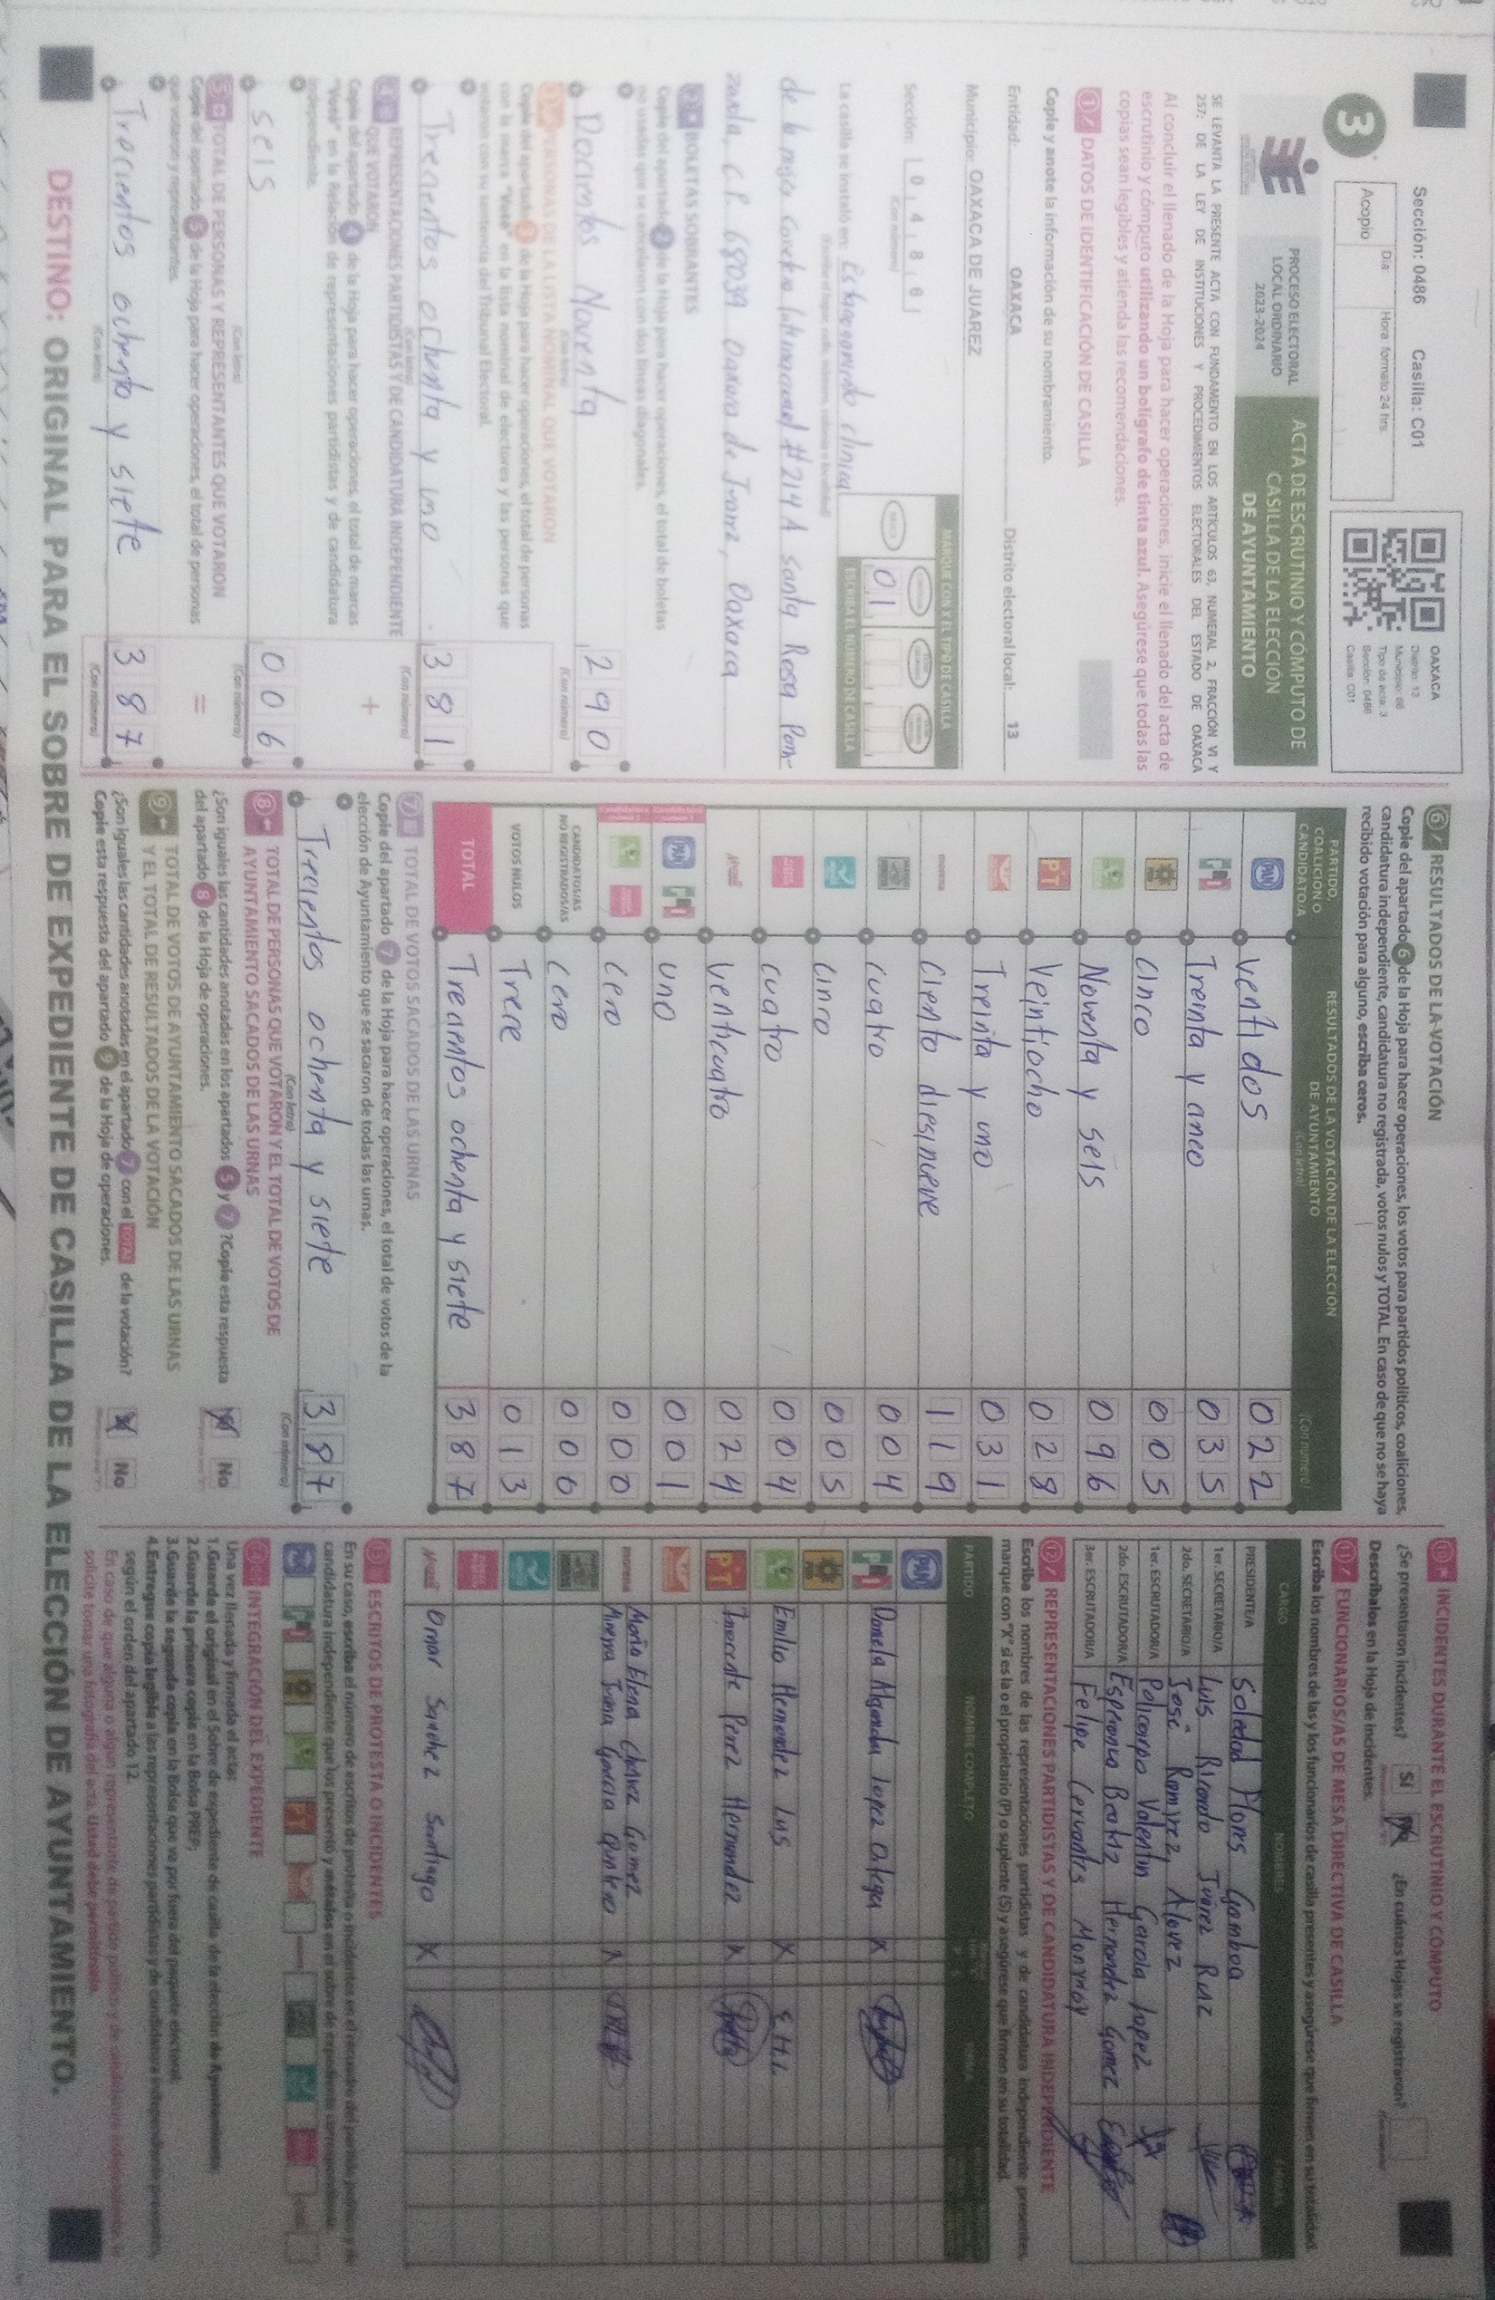 Sección: 0486 Casilla: C01
3
Acopio
Día:
Hora: formato 24 hrs.
OAXACA
Distrito: 13
Tipo de acta: 3
Sección: 0486
Casilla: C01
PROCESO ELECTORAL
LOCAL ORDINARIO
2023-2024
ACTA DE ESCRUTINIO Y CÓMPUTO DE
CASILLA DE LA ELECCIÓN
DE AYUNTAMIENTO
SE LEVANTA LA PRESENTE ACTA CON FUNDAMENTO EN LOS ARTÍCULOS 63, NUMERAL 2, FRACCIÓN VI Y
257; DE LA LEY DE INSTITUCIONES Y PROCEDIMIENTOS ELECTORALES DEL ESTADO DE OAXACA
Al concluir el llenado de la Hoja para hacer operaciones, inicie el llenado del acta de
escrutinio y cómputo utilizando un bolígrafo de tinta azul. Asegúrese que todas las
copias sean legibles y atienda las recomendaciones.
1 DATOS DE IDENTIFICACIÓN DE CASILLA
Copie y anote la información de su nombramiento.
Entidad: OAXACA Distrito electoral local: 13
Municipio: OAXACA DE JUAREZ
Sección: 0486
(Con número)
MARQUE CON X EL TIPO DE CASILLA
ESCRIBA EL NÚMERO DE CASILLA
01
La casilla se instaló en: Estacionamiento clinica
#214 A santa Rosa Pan-
zacola, C.P. 68039 Oaxaca de Juarez, Oaxaca
2 BOLETAS SOBRANTES
Copie del apartado 2 de la Hoja para hacer operaciones, el total de boletas
no usadas que se cancelaron con dos líneas diagonales.
Docientos Noventa
290
(Con letra)
(Con número)
3 PERSONAS DE LA LISTA NOMINAL QUE VOTARON
Copie del apartado 3 de la Hoja para hacer operaciones, el total de personas
con la marca "Votó" en la lista nominal de electores y las personas que
votaron con su sentencia del Tribunal Electoral.
Trecientos ochenta y uno
381
(Con letra)
(Con número)
4 REPRESENTACIONES PARTIDISTAS Y DE CANDIDATURA INDEPENDIENTE
QUE VOTARON
Copie del apartado 4 de la Hoja para hacer operaciones, el total de marcas
"Votó" en la Relación de representaciones partidistas y de candidatura
independiente.
+
seis
006
(Con letra)
(Con número)
5 TOTAL DE PERSONAS Y REPRESENTANTES QUE VOTARON
Copie del apartado 5 de la Hoja para hacer operaciones, el total de personas
que votaron y representantes.
=
Trecientos ochenta y siete
387
(Con letra)
(Con número)
6 RESULTADOS DE LA VOTACIÓN
Copie del apartado 6 de la Hoja para hacer operaciones, los votos para partidos políticos, coaliciones,
candidatura independiente, candidatura no registrada, votos nulos y TOTAL. En caso de que no se haya
recibido votación para alguno, escriba ceros.
PARTIDO,
COALICIÓN O
CANDIDATO/A
RESULTADOS DE LA VOTACIÓN DE LA ELECCIÓN
DE AYUNTAMIENTO
(Con letra)
(Con número)
PAN ventidos 022
PRI Treinta y cinco 035
PRD cinco 005
Noventa y seis 096
PT Veintiocho 028
Treinta y uno 031
morena Ciento diesinueve 119
cuatro 004
cinco 005
cuatro 004
venticuatro 024
PAN PRI uno 001
cero 000
CANDIDATOS/AS
NO REGISTRADOS/AS
cero 000
VOTOS NULOS Trece 013
TOTAL Trecientos ochenta y siete 387
7 TOTAL DE VOTOS SACADOS DE LAS URNAS
Copie del apartado 7 de la Hoja para hacer operaciones, el total de votos de la
elección de Ayuntamiento que se sacaron de todas las urnas.
Trecientos ochenta y siete 387
(Con letra)
(Con número)
8 TOTAL DE PERSONAS QUE VOTARON Y EL TOTAL DE VOTOS DE
AYUNTAMIENTO SACADOS DE LAS URNAS
¿Son iguales las cantidades anotadas en los apartados 5 y 7? Copie esta respuesta
del apartado 8 de la Hoja de operaciones.
No
9 TOTAL DE VOTOS DE AYUNTAMIENTO SACADOS DE LAS URNAS
Y EL TOTAL DE RESULTADOS DE LA VOTACIÓN
¿Son iguales las cantidades anotadas en el apartado 7 con el TOTAL de la votación?
Copie esta respuesta del apartado 9 de la Hoja de operaciones.
No
10 INCIDENTES DURANTE EL ESCRUTINIO Y CÓMPUTO
¿Se presentaron incidentes? Sí ¿En cuántas Hojas se registraron?
Descríbalos en la Hoja de incidentes.
11 FUNCIONARIOS/AS DE MESA DIRECTIVA DE CASILLA
Escriba los nombres de las y los funcionarios de casilla presentes y asegúrese que firmen en su totalidad.
CARGO NOMBRES FIRMAS
PRESIDENTE/A Soledad Flores Gamboa
1er. SECRETARIO/A Luis Ricardo Juárez Ruiz
2do. SECRETARIO/A José Ramírez Alavez
1er. ESCRUTADOR/A Policarpo Valentin García lopez
2do. ESCRUTADOR/A Esperanza Beatriz Hernandez Gomez
3er. ESCRUTADOR/A Felipe Cervantes Monrroy
12 REPRESENTACIONES PARTIDISTAS Y DE CANDIDATURA INDEPENDIENTE
Escriba los nombres de las representaciones partidistas y de candidatura independiente presentes,
marque con "X" si es la o el propietario (P) o suplente (S) y asegúrese que firmen en su totalidad.
PARTIDO NOMBRE COMPLETO
PAN
PRI Daniela Alejandra lopez X
PRD
Emilio Hernandez Luis X E.H.L
PT Inocente Perez Hernandez X
morena Maria Elena Chávez Gomez
García X
Omar Sanchez Santiago X
13 ESCRITOS DE PROTESTA O INCIDENTES
En su caso, escriba el número de escritos de protesta o incidentes en el recuadro del partido político y de
candidatura independiente que los presentó y métalos en el sobre de expediente correspondiente.
14 INTEGRACIÓN DEL EXPEDIENTE
Una vez llenada y firmada el acta:
1.Guarde el original en el Sobre de expediente de casilla de la elección de Ayuntamiento;
2.Guarde la primera copia en la Bolsa PREP;
3.Guarde la segunda copia en la Bolsa que va por fuera del paquete electoral;
4.Entregue copia legible a las representaciones partidistas y de candidatura independiente presentes,
según el orden del apartado 12.
solicite tomar una fotografía del acta. Usted debe permitírselo.
DESTINO: ORIGINAL PARA EL SOBRE DE EXPEDIENTE DE CASILLA DE LA ELECCIÓN DE AYUNTAMIENTO.